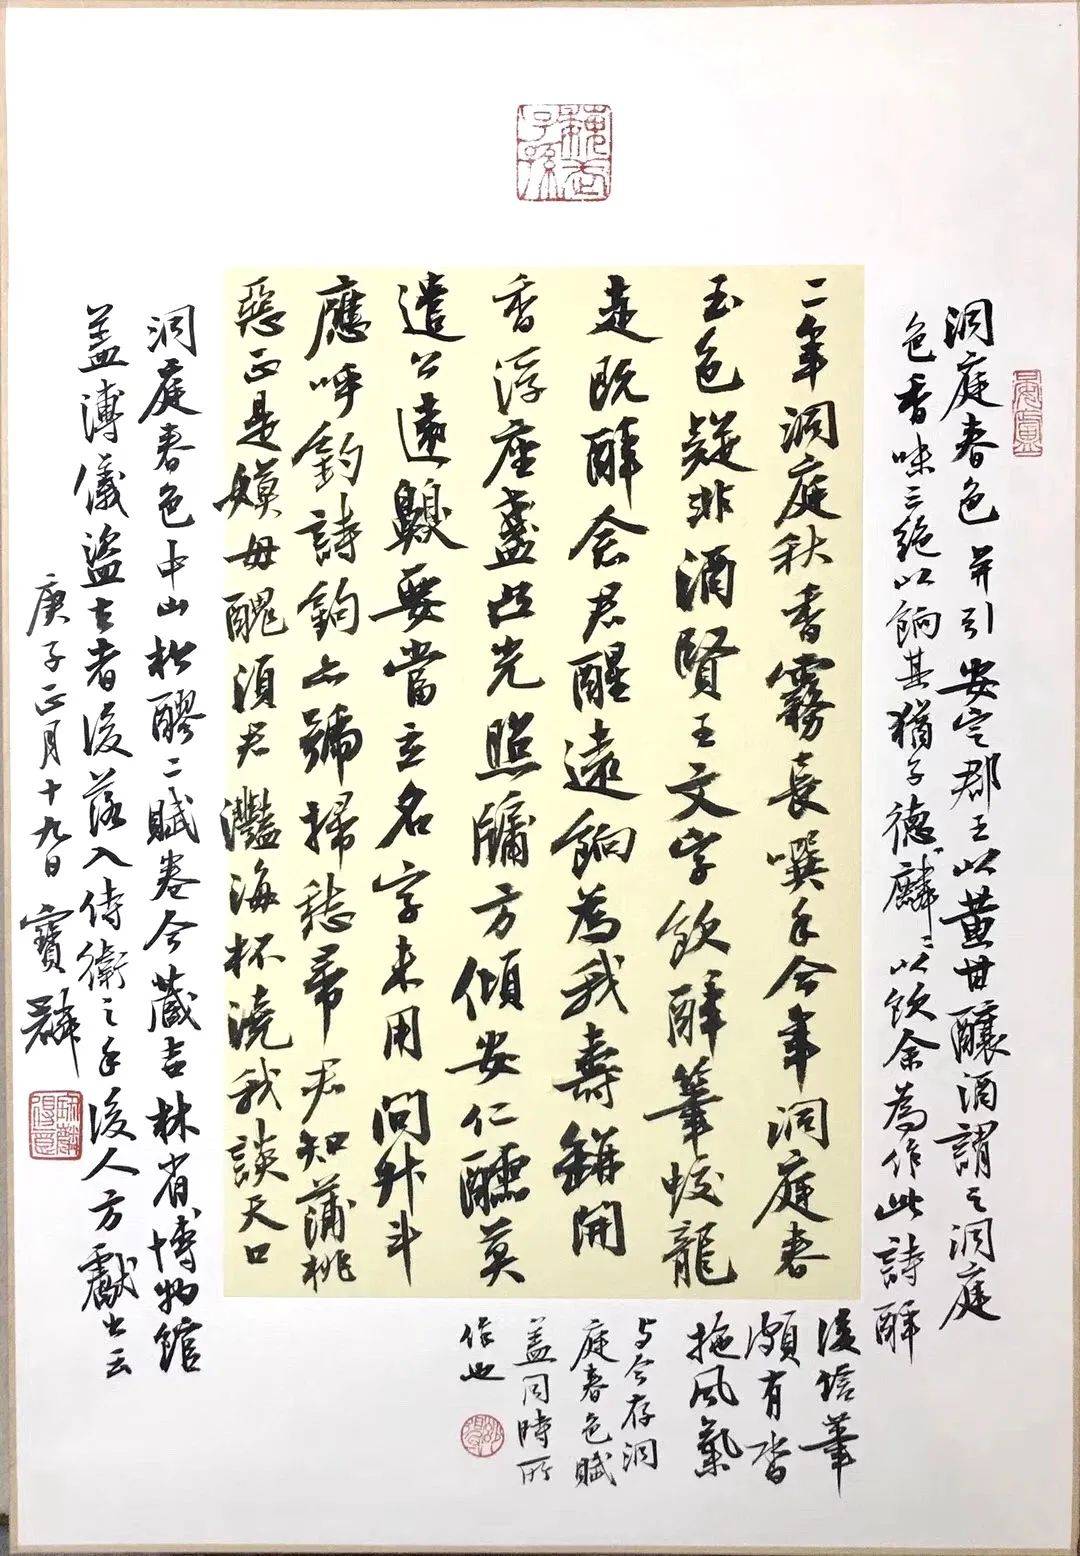 洞庭春色并引 安定郡王以黃甘釀酒謂之洞庭
色香味三絕以餉其猶子德麟〻以飲余為作此詩醉
後信筆
頗有沓
拖風氣
二年洞庭秋香霧長噀手今年洞庭春
玉色疑非酒賢王文字飲醉筆蛟龍
走既醉念君醒遠餉為我壽缾開
香浮座盞凸光照牖方傾安仁醽莫
遣公遠齅要當立名字未用問升斗
應呼釣詩鉤亦號掃愁帚君知蒲桃
惡正是嫫母醜須君灩海杯澆我談天口
与今存洞
庭春色賦
盖同時所
作也
洞庭春色中山松醪二賦卷今藏吉林省博物館
盖溥儀盜去者後落入侍衛之手後人方獻出云
庚子正月十九日 寶麟